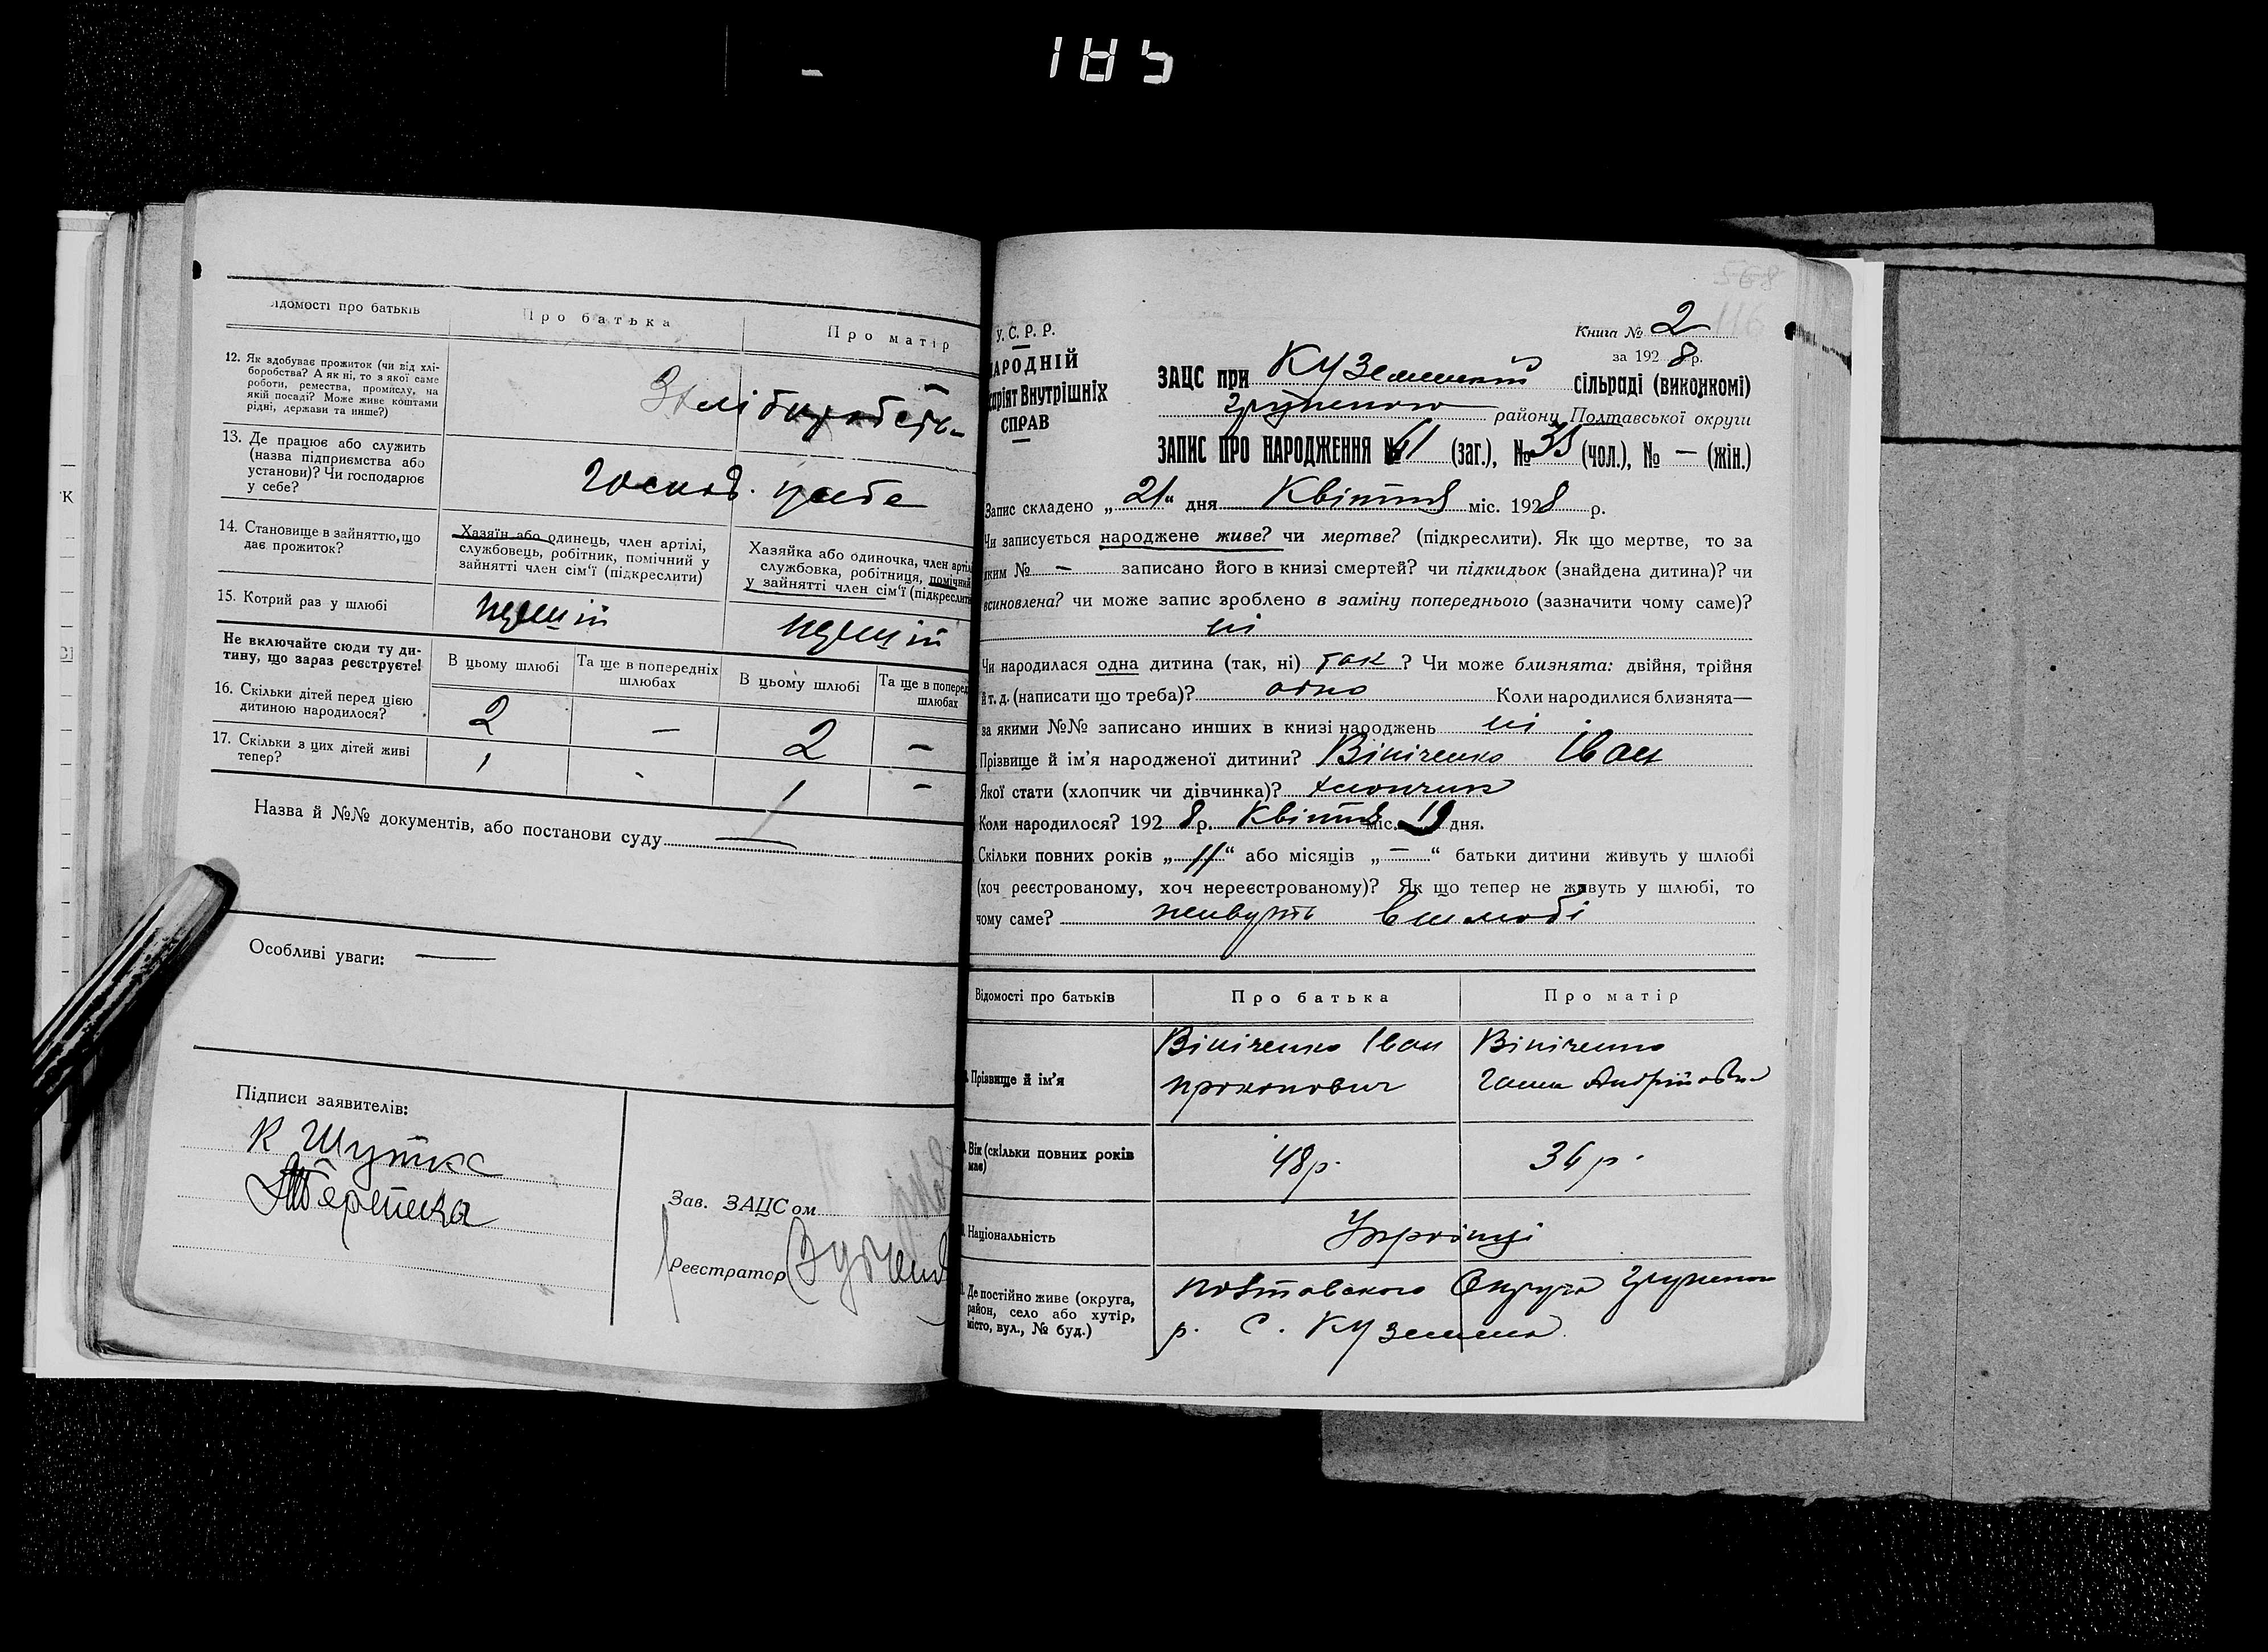 185
ідомості про батьків
Про батька
Про матір
12. Як здобуває прожиток (чи від хлі-
боробства? А як ні, то з якої саме
роботи, ремества, промислу, на
якій посаді? Може живе коштами
рідні, держави та инше?)
13. Де працює або служить
(назва підприємства або
установи)? Чи господарює
у себе?
14. Становище в зайняттю, що
дає прожиток?
Хазяїн або одинець, член артілі,
службовець, робітник, помічний у
зайнятті член сім'ї (підкреслити)
Хазяйка або одиночка, член артіл
службовка, робітниця, помічний
у зайнятті член сім'ї (підкреслити
15. Котрий раз у шлюбі
перший
перший
Не включайте сюди ту ди-
тину, що зараз реєструєте!
В цьому шлюбі
Та ще в попередніх
шлюбах
В цьому шлюбі
Та ще в поперед
шлюбах
16. Скільки дітей перед цією
дитиною народилося?
2 – 2 –
17. Скільки з цих дітей живі
тепер?
1 - 1 –
Назва й №№ документів, або постанови суду —
Особливі уваги: —
Підписи заявителів:
К Шутка
Зав. ЗАЦСом
Реєстратор
568
116
У.С.Р.Р.
НАРОДНІЙ
саріят Внутрішніх
СПРАВ
Книга № 2
за 1928 р.
ЗАЦС при Куземській сільраді (виконкомі)
району Полтавської округи
ЗАПИС ПРО НАРОДЖЕННЯ № 61 (заг.), № 35 (чол.), № — (жін.)
Запис складено „21“ дня Квітня міс. 1928 р.
Чи записується народжене живе? чи мертве? (підкреслити). Як що мертве, то за
яким № – записано його в книзі смертей? чи підкидьок (знайдена дитина)? чи
всиновлена? чи може запис зроблено в заміну попереднього (зазначити чому саме)?
ні
Чи народилася одна дитина (так, ні) так ? Чи може близнята: двійня, трійня
й т. д. (написати що треба)? одно Коли народилися близнята—
за якими №№ записано инших в книзі народжень ні
Прізвище й ім'я народженої дитини? Вініченко Іван
Якої стати (хлопчик чи дівчинка)? хлопчик
Коли народилося? 1928 р. Квітня міс. 19 дня.
Скільки повних років „11“ або місяців „–“ батьки дитини живуть у шлюбі
(хоч реєстрованому, хоч нереєстрованому)? Як що тепер не живуть у шлюбі, то
чому саме? живуть в шлюбі
Відомості про батьків
Про батька
Про матір
Прізвище й ім'я
Вініченко Іван
Прокопович
Вініченко
Ганна Андріївна
Вік (скільки повних років
має)
48 р.
36 р.
Національність
Українці
Де постійно живе (округа,
район, село або хутір,
місто, вул., № буд.)
Полтавського Округа
р. С. Куземена